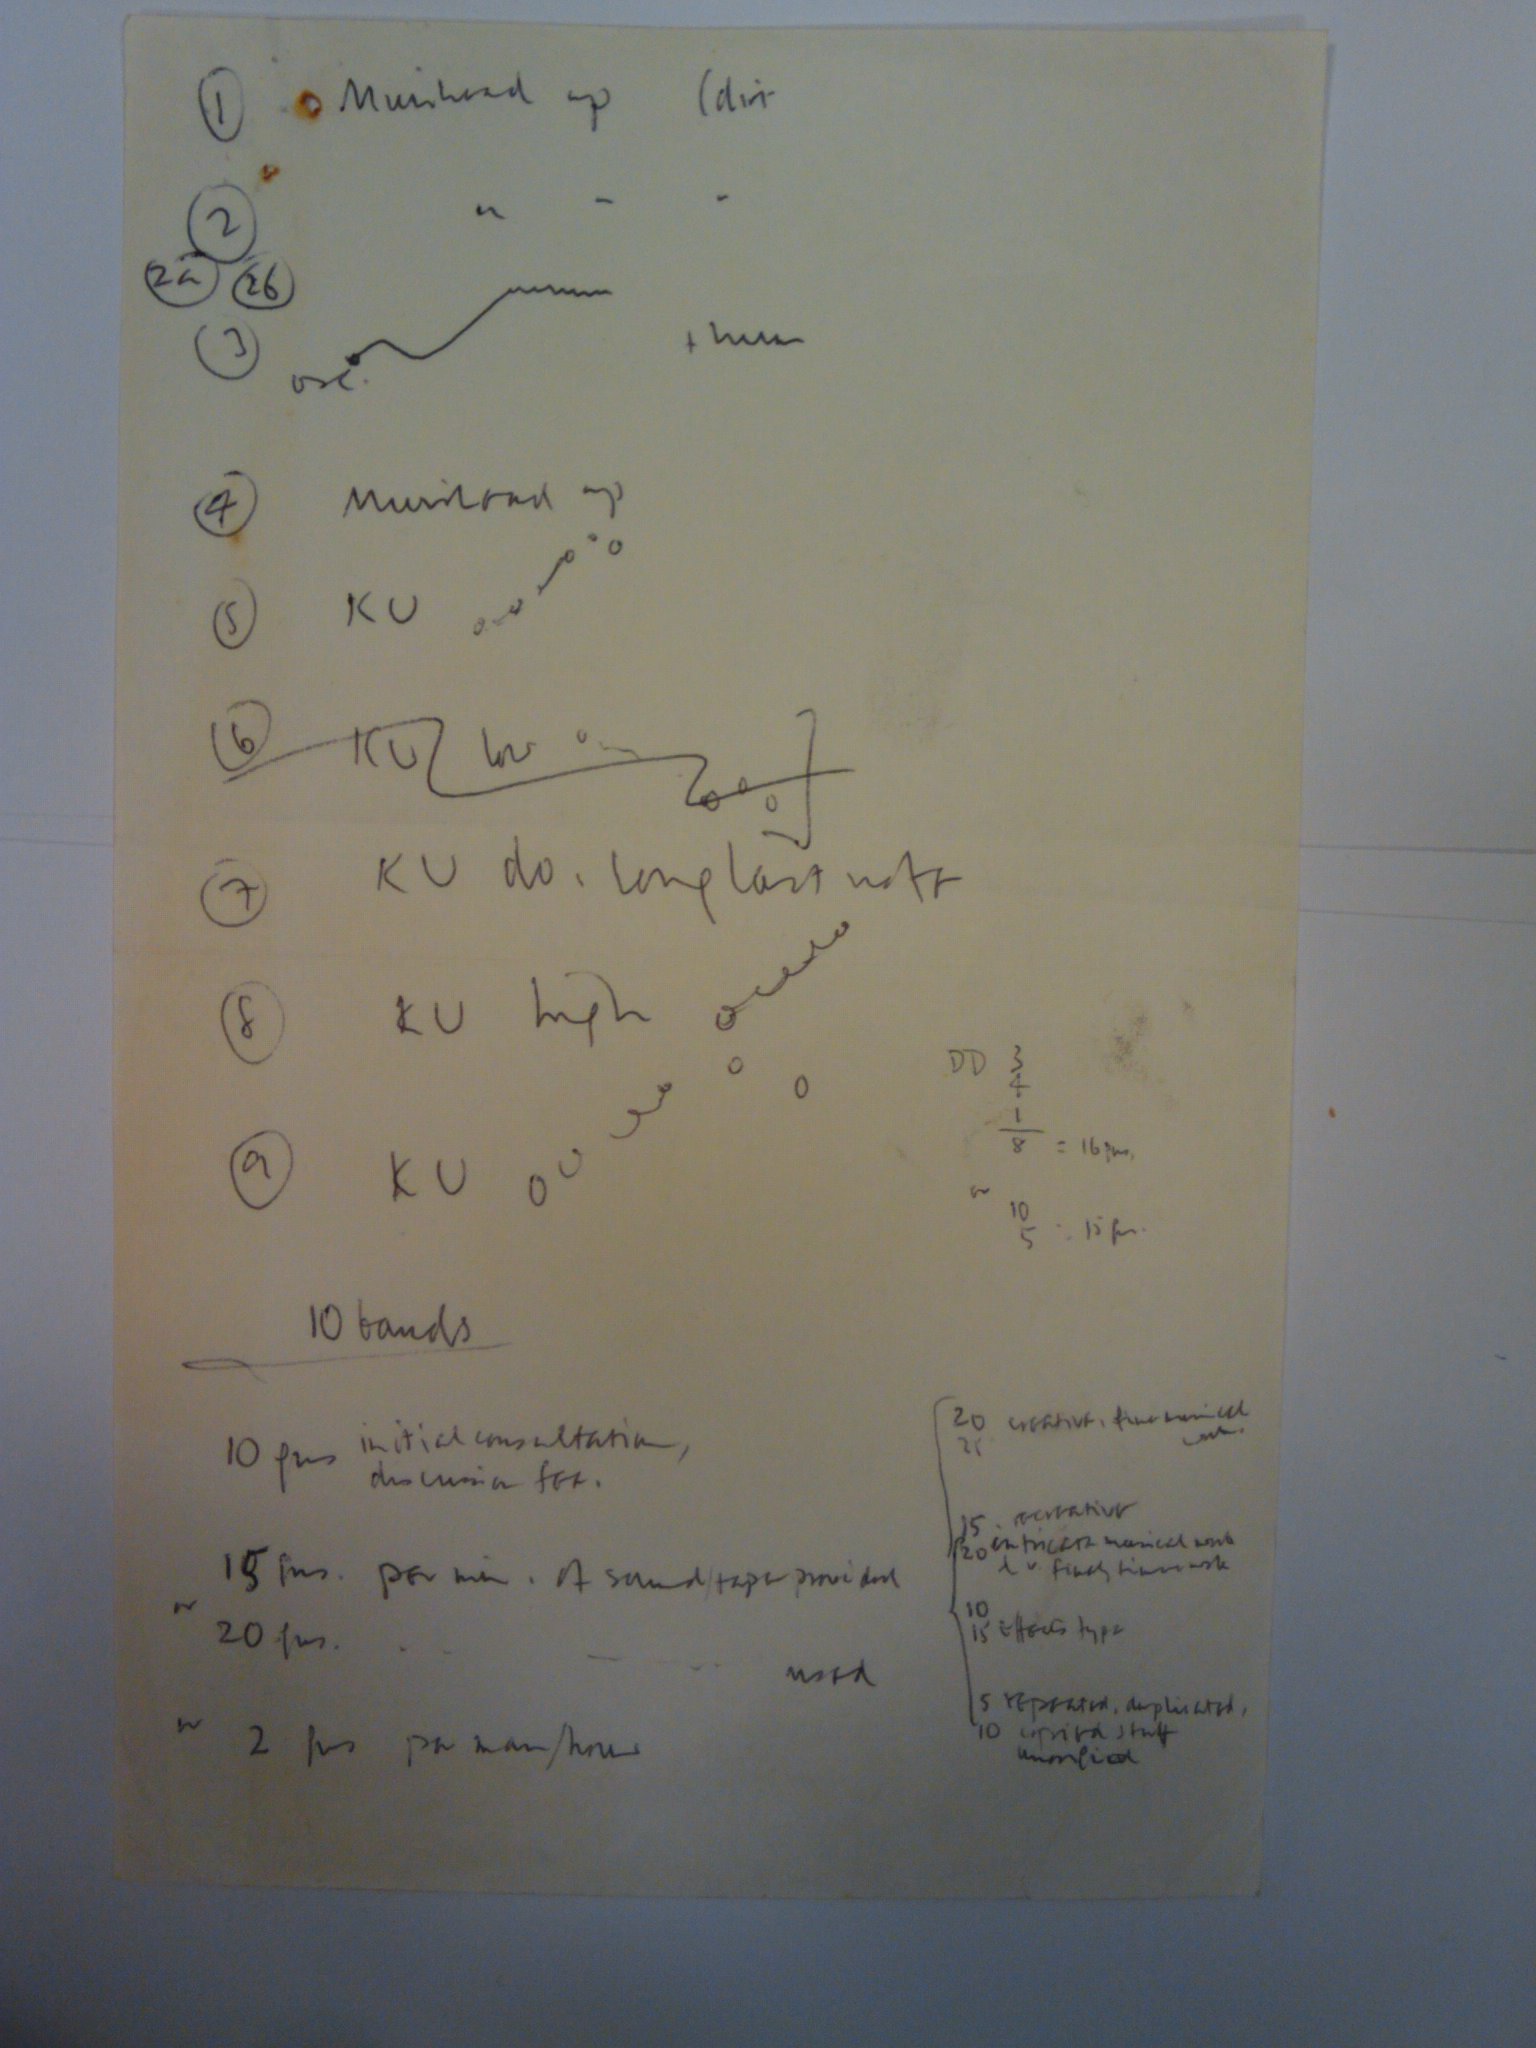 ① Muirhead up (dist
②
2a 2b
③ osc. + hum
④ Muirhead up
⑤ KU
⑥ KU low
⑦ KU do. long last note
⑧ KU high
⑨ KU
DD 3
4
1
8 = 16 gns.
or
10
5 15 gns.
10 bands
10 gns initial consultation,
discussion fee.
15 gns. per min. of sound/tape provided
or
20 gns.
used
or 2 gns per man/hour
20 creative, fine musical
25 work.
15 recreative
20 intricate musical work
finely timed work
10
15 effects type
5 repeated, duplicated,
10 copied stuff